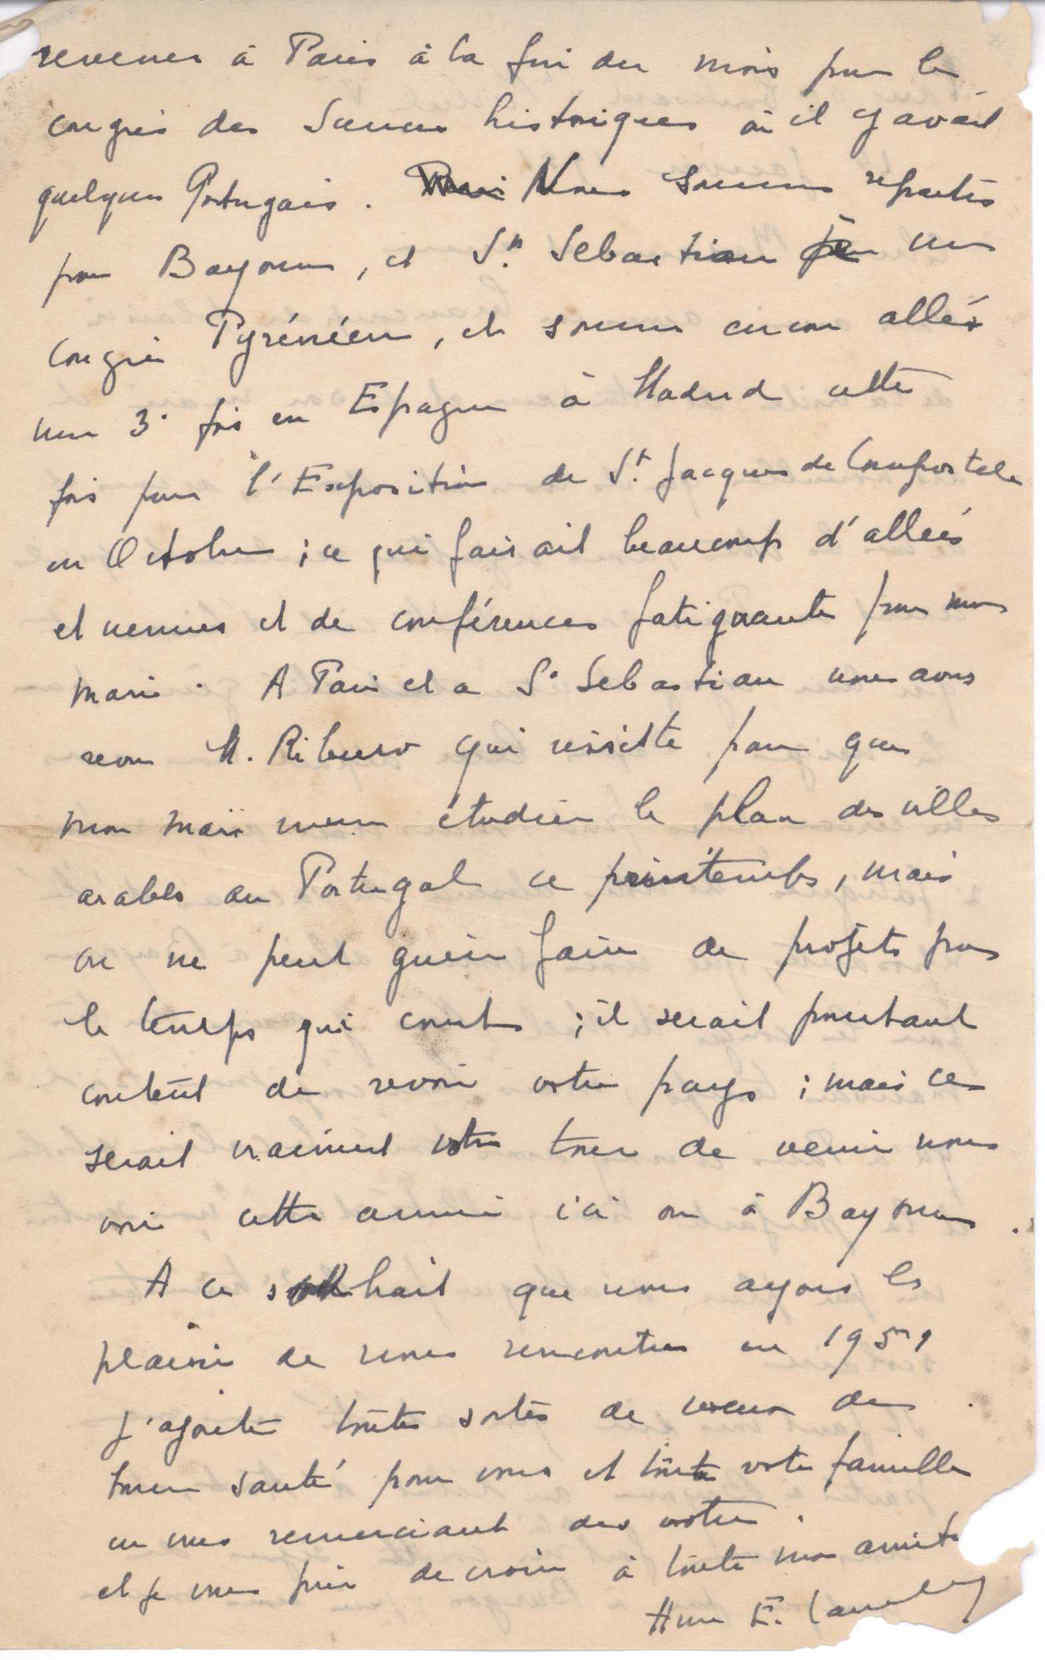 revenus à Paris à la fin du mois pour le
congrès des Sciences historiques où il y avait
quelques Portugais. Nous sommes repartis
pour Bayonne, et St Sebastian pour un
Congrès Pyrénéen, et sommes encore allés
une 3e fois en Espagne à Madrid cette
fois pour l'Exposition de St. Jacques de Compostela
en Octobre ; ce qui faisait beaucoup d'allées
et venues et de conférences fatigantes pour mon
mari. A Paris et a St Sebastian nous avons
revu M. Ribeiro qui insiste pour que
mon mari vienne étudier le plan des villes
arabes au Portugal ce printemps, mais
on ne peut guère faire de projets par
le temps qui court ; il serait pourtant
content de revoir votre pays ; mais ce
serait vraiment votre tour de venir nous
voir cette année ici ou à Bayonne.
A ce souhait que nous ayons le
plaisir de nous rencontrer en 1951
j'ajoute toutes sortes de voeux de
bonne santé pour vous et toute votre famille
en vous remerciant des votres.
et je vous prie de croire à toute mon amitié
E.